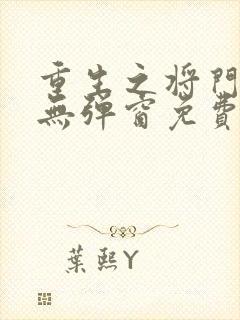 重生之将門
無彈窗免費
葉熙Y